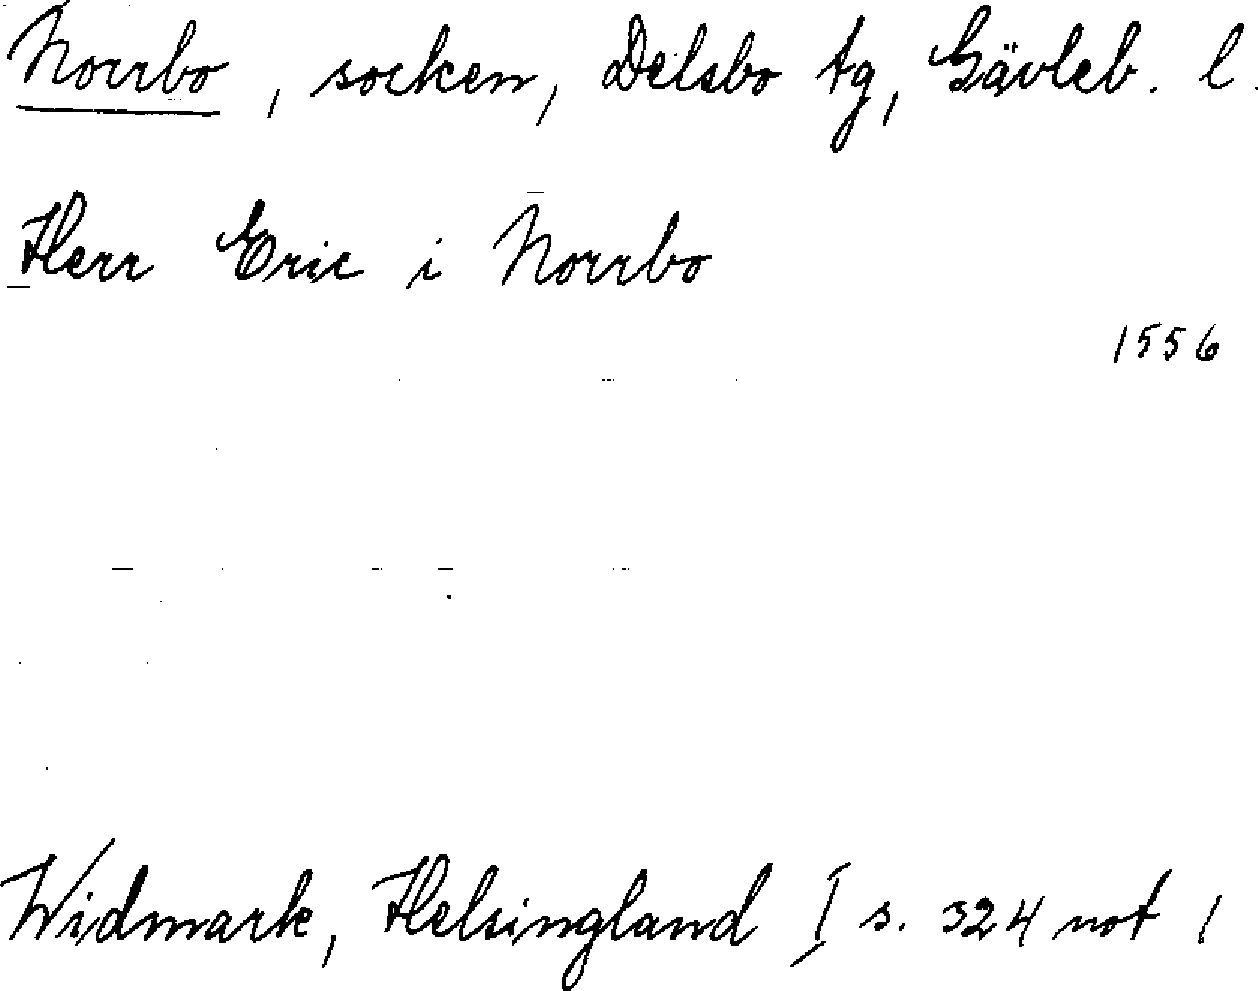 Norrbo, socken, Delsbo tg, Gävleb. l.
Herr Eric i Norrbo
1556
Widmark, Helsingland I s. 324 not 1